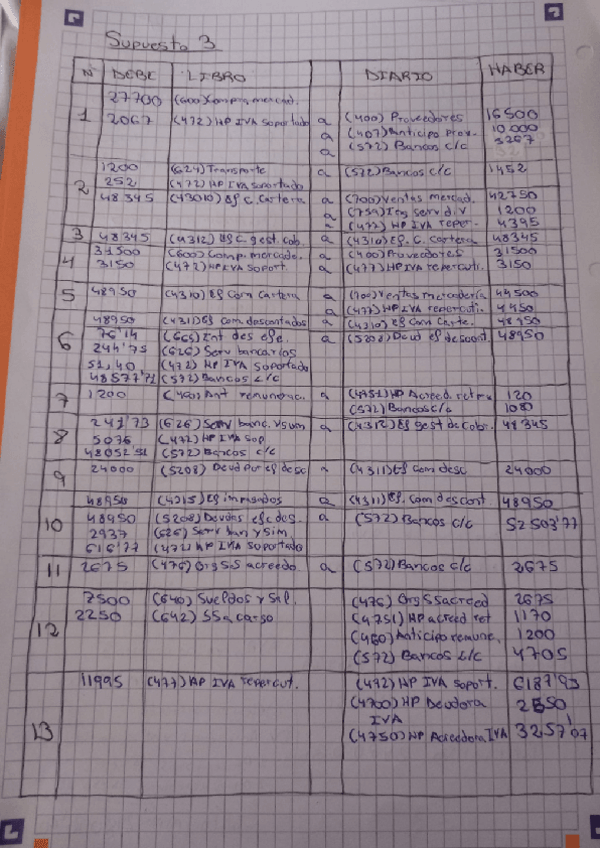 Supuesto 3
Nº DEBE LIBRO DIARIO HABER
1
27700 (600) Compra mercad.
2067 (472) HP IVA Soportado a (400) Proveedores 16500
a (407) Anticipo Prov. 10000
a (572) Bancos c/c 3267
2
1200 (624) Transporte a (572) Bancos c/c 1452
252 (472) HP IVA soportado
48345 (43010) Ef C. Cartera a (700) Ventas mercad. 42750
a (759) Ing serv div 1200
a (477) HP IVA reper. 4395
3 48345 (4312) Ef C. gest. cob. a (4310) Ef. C. cartera 48345
4 31500 (600) Comp. mercade. a (400) Proveedores 31500
3150 (472) HP IVA Soport. a (477) HP IVA repercuti. 3150
5 48950 (4310) Ef Com Cartera a (700) Ventas mercadería 44500
a (477) HP IVA repercuti. 4450
6
48950 (4311) Ef com descontados a (4310) Ef Com Carte. 48950
76'14 (665) Int des efe. a (5208) Deud ef descont 48950
244'75 (626) Serv bancarios
51,40 (472) HP IVA Soportado
48577'71 (572) Bancos c/c
7 1200 (460) Ant remunerac. a (4751) HP Acreed. ret 120
(572) Bancos c/c 1080
8
241'73 (626) Serv banc. y sim a (4312) Ef gest de Cobr. 48345
50'76 (472) HP IVA Sop
48052'51 (572) Bancos c/c
9 24000 (5208) Deud por ef desc a (4311) Ef com desc 24000
10
48950 (4315) Ef impagados a (4311) Ef. com descont 48950
48950 (5208) Deudas efe des. a (572) Bancos c/c 52503'77
2937 (626) Serv ban y sim.
616'77 (472) HP IVA Soportado
11 2675 (476) Org SS acreedo a (572) Bancos c/c 2675
12
7500 (640) Sueldos y sal. (476) Org SS acreed 2675
2250 (642) SS a cargo (4751) HP acreed ret 1170
(460) Anticipo remune. 1200
(572) Bancos c/c 4705
13
11995 (477) HP IVA repercut. (472) HP IVA soport. 6187'93
(4700) HP Deudora 2550
IVA
(4750) HP Acreedora IVA 3257'07